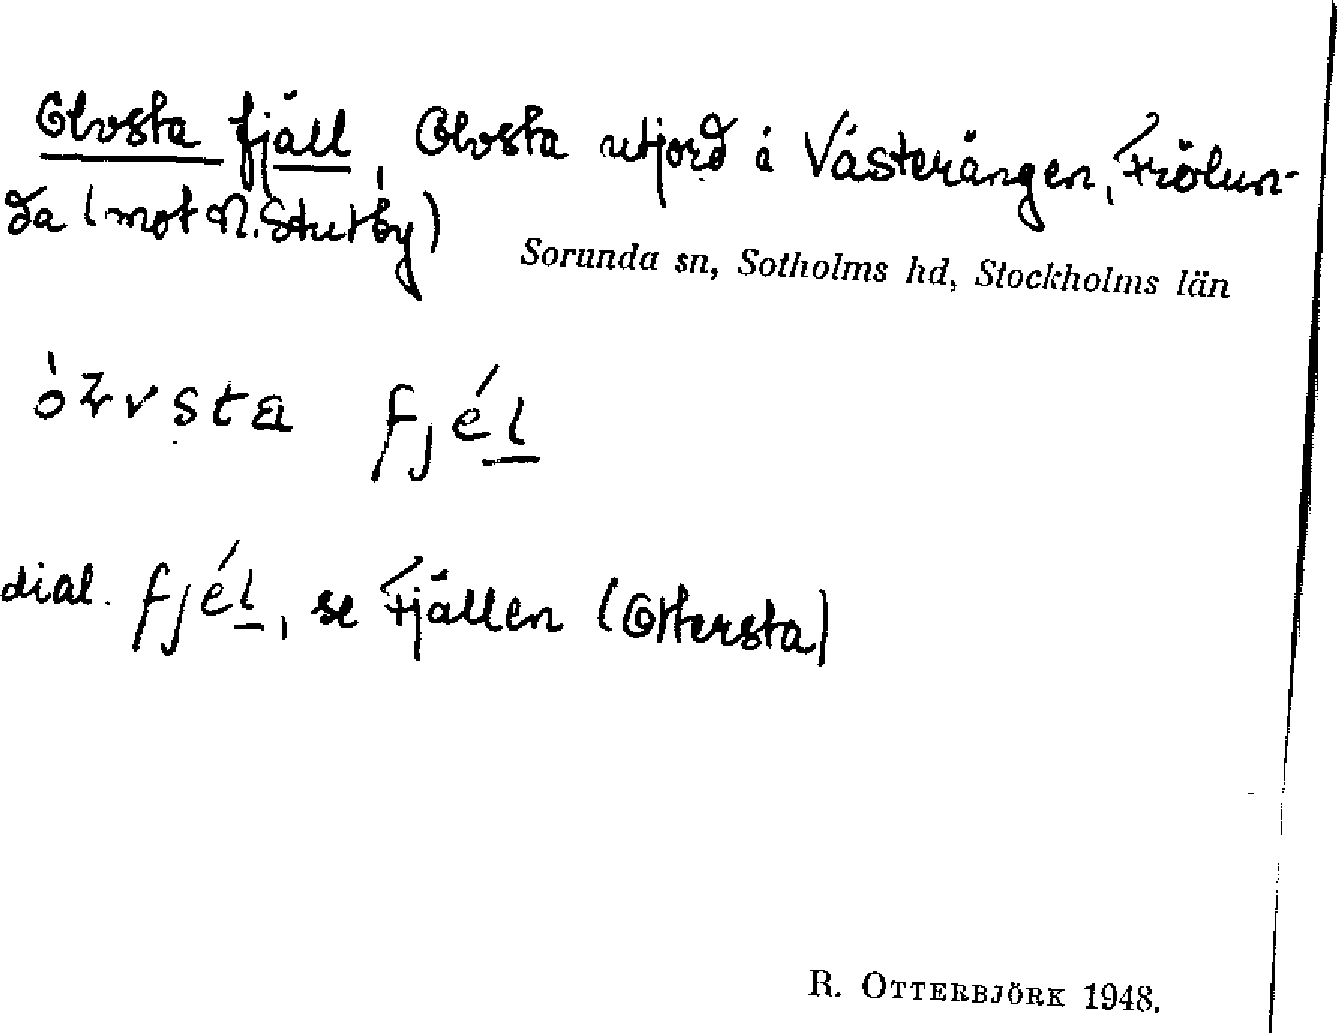 Olvsta fjäll, Olvsta utjord å Västerängen, Frölun-
da (mot N. Stutby)
Sorunda sn, Sotholms hd, Stockholms län
fjél
dial. fjél, se Fjällen (Ottersta)
R. OTTERBJÖRK 1948.